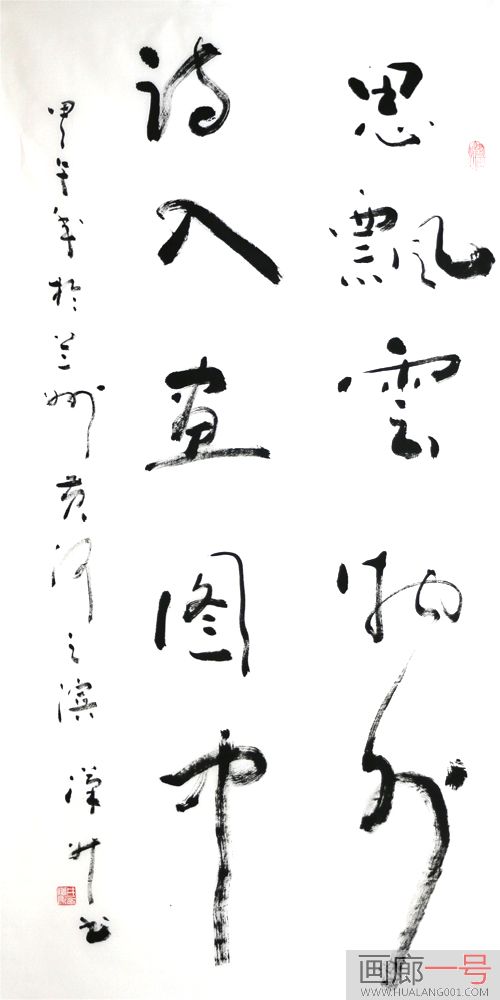 思飄雲物外
诗入画图中
甲午年於兰州黄河之滨 漢升书
画廊一号
WWW.HUALANG001.COM